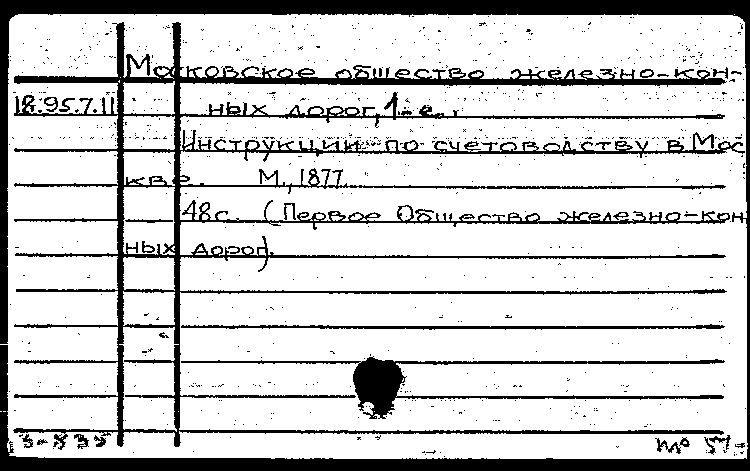 Московское общество железно-кон-
18.95.7.11 ных дорог, 1-е.
Инструкции по счетоводству в Мос
кве. М., 1877.
48с. (Первое Общество железно-кон
ных дорог).